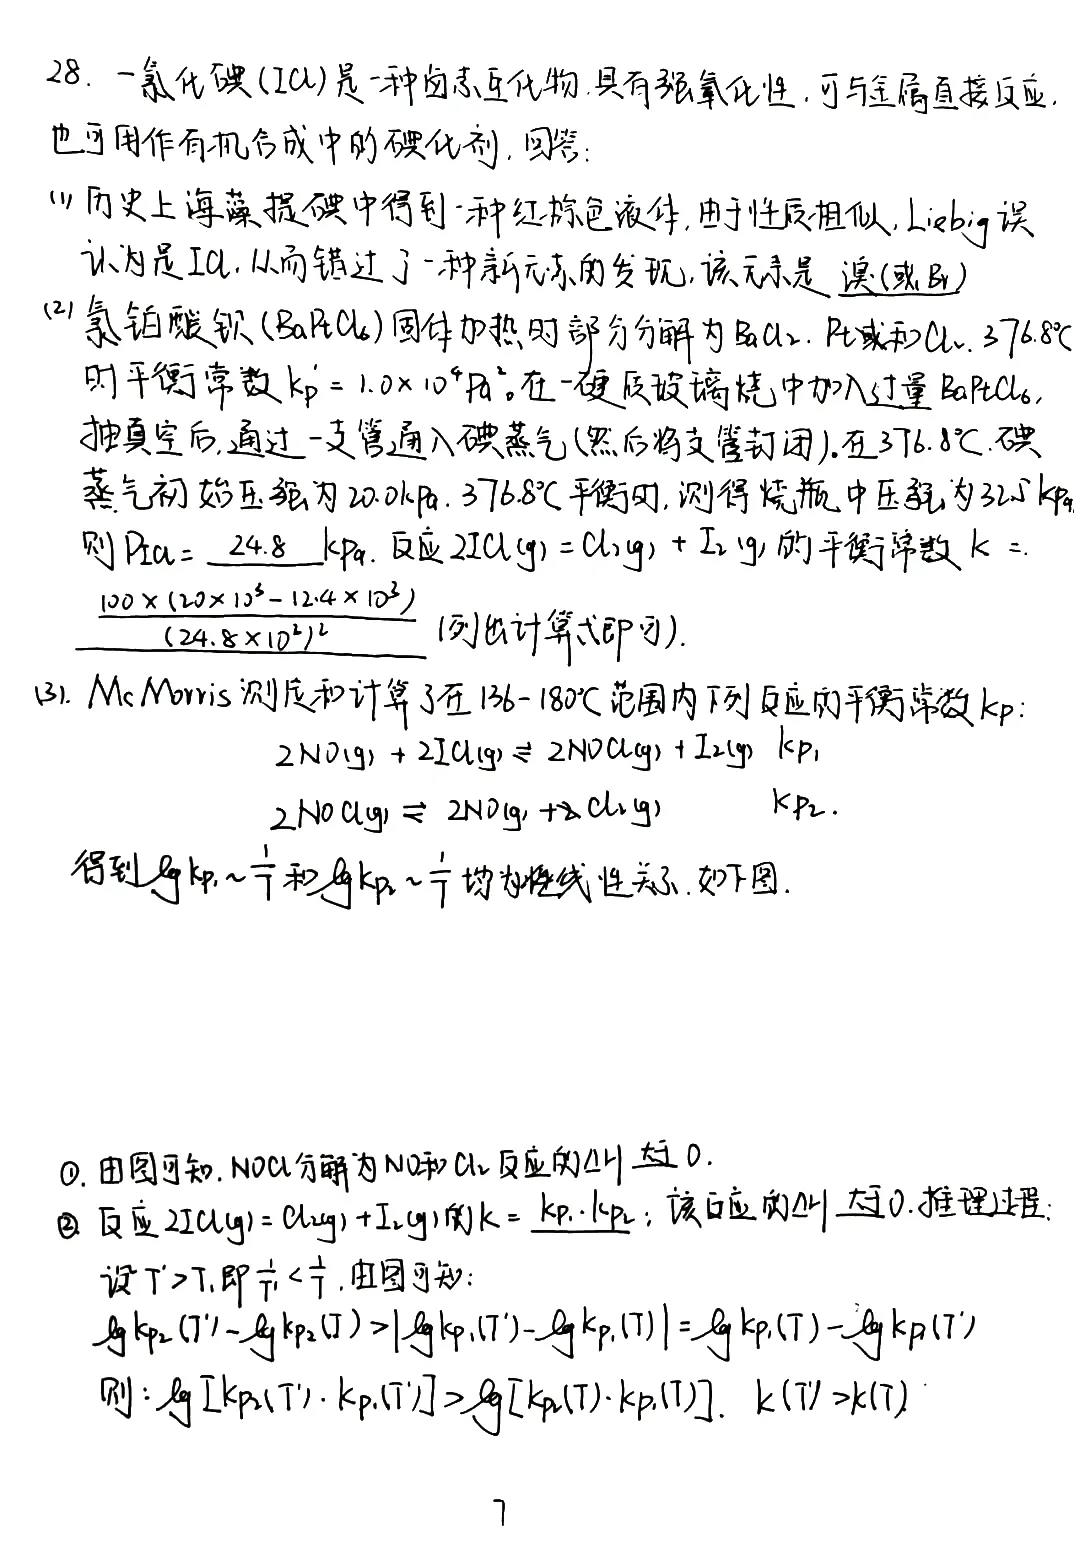 28. 一氯化碘(ICl)是一种卤素互化物,具有强氧化性,可与金属直接反应,
也可用作有机合成中的碘化剂,回答:
(1) 历史上海藻提碘中得到一种红棕色液体,由于性质相似,Liebig误
认为是ICl,从而错过了一种新元素的发现,该元素是 溴(或Br)
(2) 氯铂酸钡(BaPtCl₆)固体加热时部分分解为BaCl₂、Pt或和Cl₂,376.8℃
时平衡常数kp′=1.0×10⁴Pa²。在一硬质玻璃烧中加入过量BaPtCl₆,
抽真空后,通过一支管通入碘蒸气(然后将支管封闭)。在376.8℃,碘
蒸气初始压强为20.0kPa. 376.8℃平衡时,测得烧瓶中压强为32.5kPa,
则PICl= 24.8 kPa. 反应2ICl(g)=Cl₂(g)+I₂(g)的平衡常数K=
100×(20×10³-12.4×10³)
(24.8×10²)² (列出计算式即可).
(3). McMorris测定和计算了在136-180℃范围内下列反应的平衡常数kp:
2NO(g)+2ICl(g)⇌2NOCl(g)+I₂(g) kp₁
2NOCl(g)⇌2NO(g)+Cl₂(g) Kp₂.
得到lgkp₁~1/T和lgkp₂~1/T均为线性关系.如下图.
①. 由图可知.NOCl分解为NO和Cl₂反应的△H 大于 0.
② 反应2ICl(g)=Cl₂(g)+I₂(g)的K= kp₁·kp₂; 该反应的△H 大于0.推理过程:
设T′>T,即1/T′<1/T,由图可知:
lgkp₂(T′)-lgkp₂(T)>|lgkp₁(T′)-lgkp₁(T)|=lgkp₁(T)-lgkp₁(T′)
则:lg[kp₂(T′)·kp₁(T′)]>lg[kp₂(T)·kp₁(T)]. k(T′)>k(T).
7